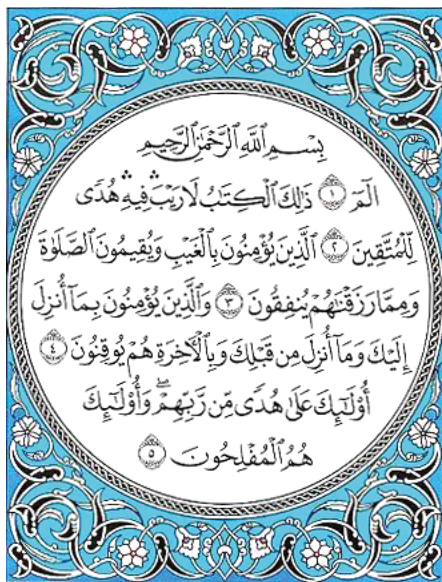 بِسْمِ ٱللَّهِ ٱلرَّحْمَٰنِ ٱلرَّحِيمِ
الٓمٓ ١ ذَٰلِكَ ٱلْكِتَٰبُ لَا رَيْبَ ۛ فِيهِ ۛ هُدًى
لِّلْمُتَّقِينَ ٢ ٱلَّذِينَ يُؤْمِنُونَ بِٱلْغَيْبِ وَيُقِيمُونَ ٱلصَّلَوٰةَ
وَمِمَّا رَزَقْنَٰهُمْ يُنفِقُونَ ٣ وَٱلَّذِينَ يُؤْمِنُونَ بِمَآ أُنزِلَ
إِلَيْكَ وَمَآ أُنزِلَ مِن قَبْلِكَ وَبِٱلْءَاخِرَةِ هُمْ يُوقِنُونَ ٤
أُو۟لَٰٓئِكَ عَلَىٰ هُدًى مِّن رَّبِّهِمْ ۖ وَأُو۟لَٰٓئِكَ
هُمُ ٱلْمُفْلِحُونَ ٥